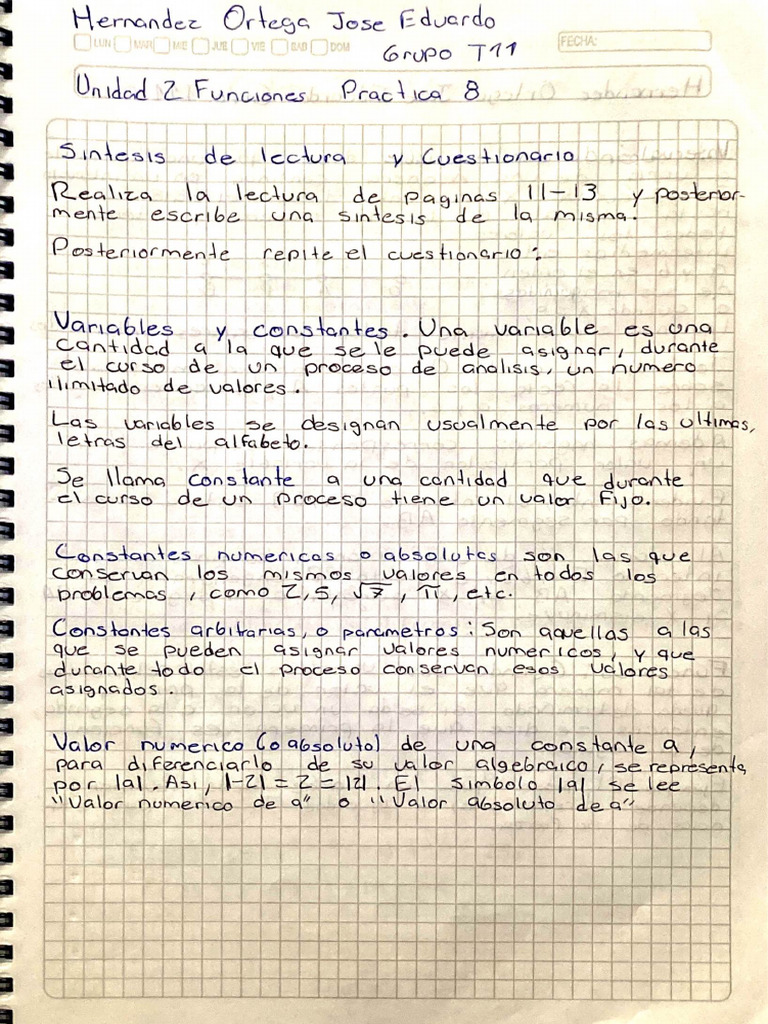 Hernandez Ortega Jose Eduardo
LUN MAR MIE JUE VIE SAB DOM
FECHA:
Grupo T11
Unidad 2 Funciones Practica 8
Sintesis de lectura y Cuestionario
Realiza la lectura de paginas 11-13 y posterior-
mente escribe una sintesis de la misma.
Posteriormente repite el cuestionario:
Variables y constantes. Una variable es una
cantidad a la que se le puede asignar, durante
el curso de un proceso de analisis, un numero
ilimitado de valores.
Las variables se designan usualmente por las ultimas,
letras del alfabeto.
Se llama constante a una cantidad que durante
el curso de un proceso tiene un valor Fijo.
Constantes numericas o absolutas son las que
conservan los mismos valores en todos los
problemas, como 2, 5, √7, π, etc.
Constantes arbitrarias, o parametros: Son aquellas a las
que se pueden asignar valores numericos, y que
durante todo el proceso conservan esos valores
asignados.
Valor numerico (o absoluto) de una constante a,
para diferenciarlo de su valor algebraico, se representa
por |a|. Asi, |-2| = 2 = |2|. El simbolo |a| se lee
"Valor numerico de a" o "Valor absoluto de a"